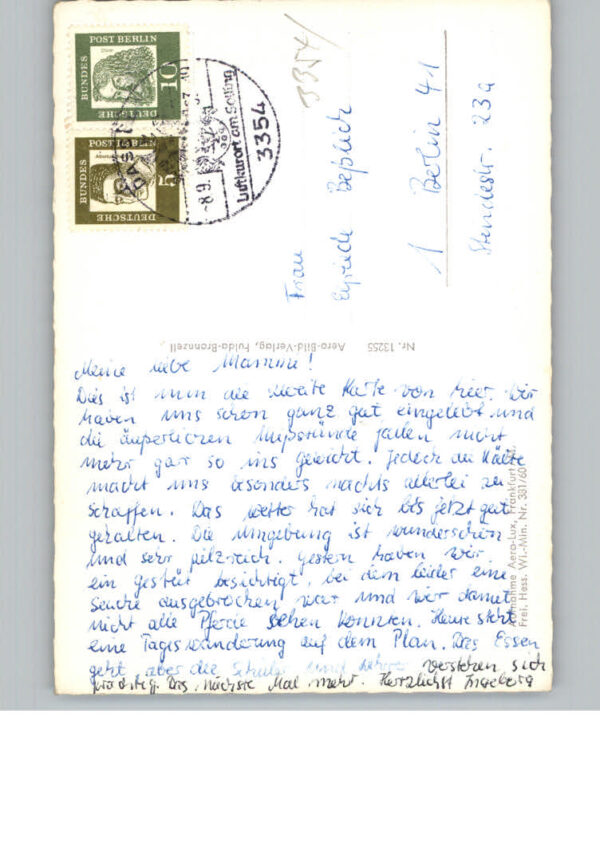 BUNDES
POST BERLIN
10
DEUTSCHE
BUNDES
POST BERLIN
5
DEUTSCHE
-8.9.
Luftkurort am Solling
3354
3354/
Frau
1 Berlin 41
Stendestr. 23a
Nr. 13255 Aero-Bild-Verlag, Fulda-Bronnzell
Aufnahme Aero-Lux, Frankfurt/M.
Frei. Hess. Wi.-Min. Nr. 381/60
Meine liebe Mammi!
Dies ist nun die zweite Karte von hier. Wir
haben uns schon ganz gut eingelebt und
die äußerlichen Mißstände fallen nicht
mehr gar so ins Gewicht. Jedoch die Kälte
macht uns besonders nachts allerlei zu
schaffen. Das Wetter hat sich bis jetzt gut
gehalten. Die Umgebung ist wunderschön
und sehr pilzreich. Gestern haben wir
ein Gestüt besichtigt, bei dem leider eine
Seuche ausgebrochen war und wir damit
nicht alle Pferde sehen konnten. Heute steht
eine Tageswanderung auf dem Plan. Das Essen
geht aber die Schüler und Lehrer verstehen sich
prächtig. Das nächste Mal mehr. Herzlichst Ingeborg